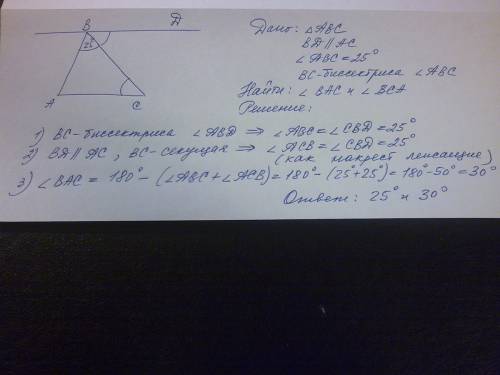 B
D
25°
A
C
Дано: △ABC
BD ∥ AC
∠ABC = 25°
BC-биссектриса ∠ABC
Найти: ∠BAC и ∠BCA
Решение:
1) BC-биссектриса ∠ABD ⇒ ∠ABC = ∠CBD = 25°
2) BD ∥ AC, BC-секущая ⇒ ∠ACB = ∠CBD = 25°
(как накрест лежащие)
3) ∠BAC = 180° - (∠ABC + ∠ACB) = 180° - (25° + 25°) = 180° - 50° = 30°
Ответ: 25° и 30°